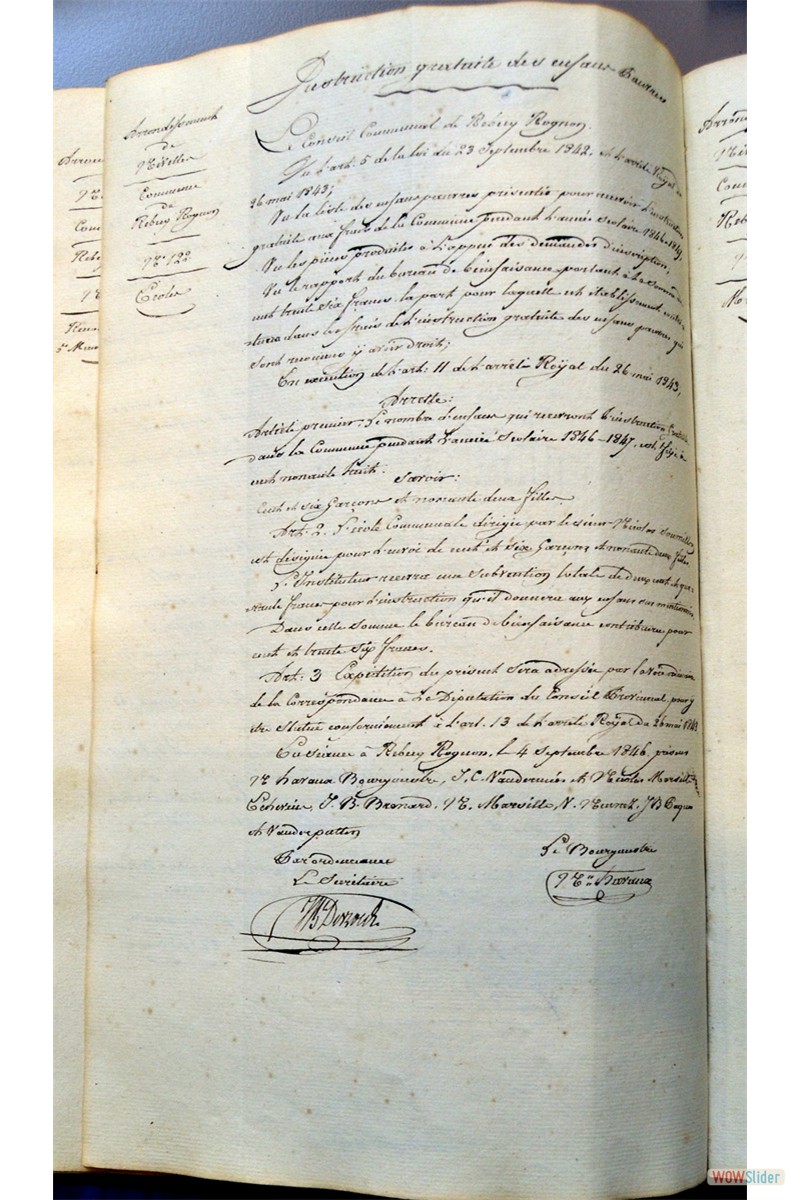 Instruction gratuite des enfans Pauvres
Arrondissement
de
Nivelles
Commune
de
Rebecq Rognon
N° 120
Ecoles
Le Conseil Communal de Rebecq Rognon.
Vu l'art. 5 de la loi du 23 Septembre 1842, et l'arrêté Royal du
26 mai 1843;
Vu la liste des enfans pauvres présentée pour recevoir l'instruction
gratuite aux frais de la Commune pendant l'année Scolaire 1846-1847,
Vu les pièces produites à l'appui des demandes d'inscription,
Vu le rapport du bureau de bienfaisance portant à la somme de
cent trente six francs, la part pour laquelle cet établissement
dans les frais de l'instruction gratuite des enfans pauvres qui
sont reconnus y avoir droit;
En exécution de l'art: 11 de l'arrêté Royal du 26 mai 1843,
Arrête:
Article premier: Le nombre d'enfans qui recevront l'instruction gratuite
dans la Commune pendant l'année Scolaire 1846-1847, est fixé à
cent nonante huit:
Savoir:
Cent et six Garçons et nonante deux filles
Art: 2. L'école Communale dirigée par le sieur Nicolas
est désignée pour l'envoi de cent et six Garçons et nonante deux filles
L'Instituteur recevra une Subvention totale de
francs pour l'instruction qu'il donnera aux enfans sus mentionnés,
Dans cette Somme le bureau de bienfaisance contribuera pour
cent et trente six francs.
Art: 3 Expédition du présent sera adressée par la voie ordinaire
de la Correspondance à la Députation du Conseil Provincial pour y
être Statué conformément à l'art. 13 de l'arrêté Royal du 26 mai 1843
En séance à Rebecq Rognon, le 4 Septembre 1846, présens
Havaux Bourgmestre, J. C. et Nicolas
Echevins, J. B. N. Marsille, N. J B
et
Par ordonnance
Le Secrétaire
Le Bourgmestre
Havaux
WOWSlider